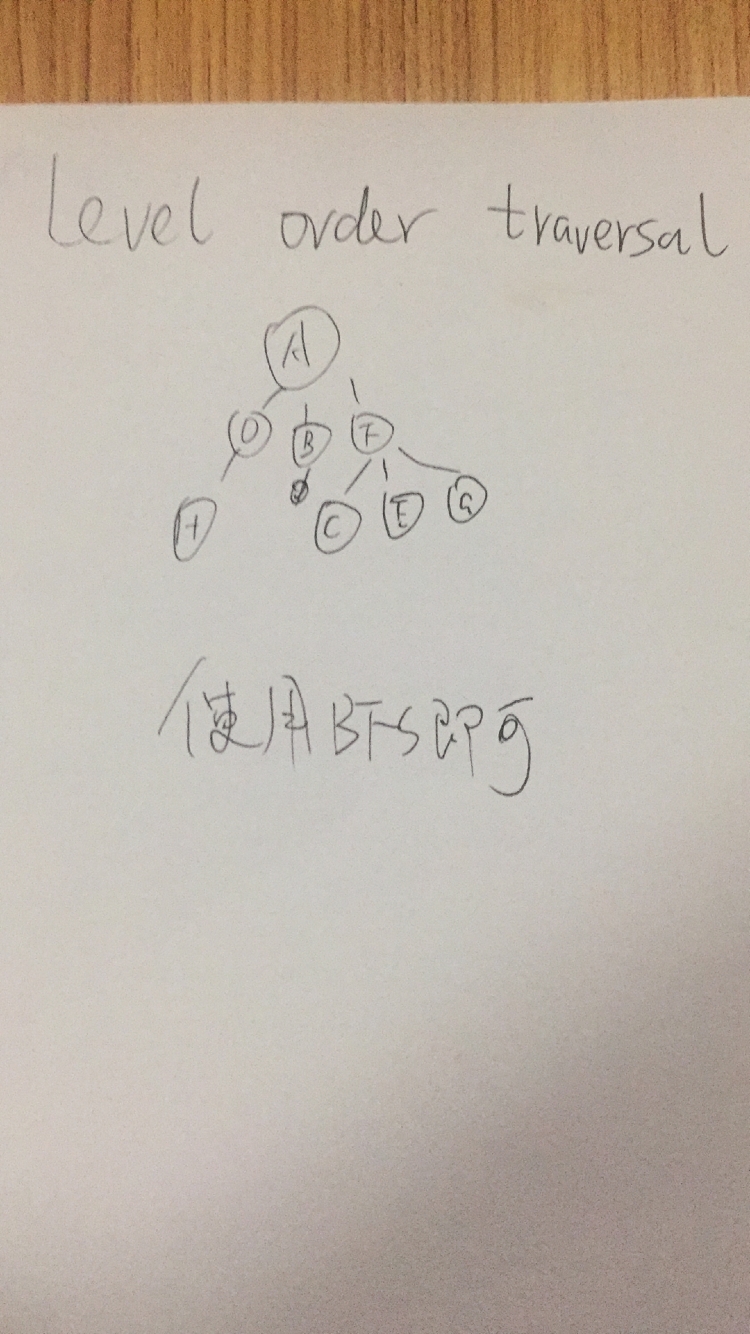 Level order traversal
A
D B F
H C E G
使用BFS即可